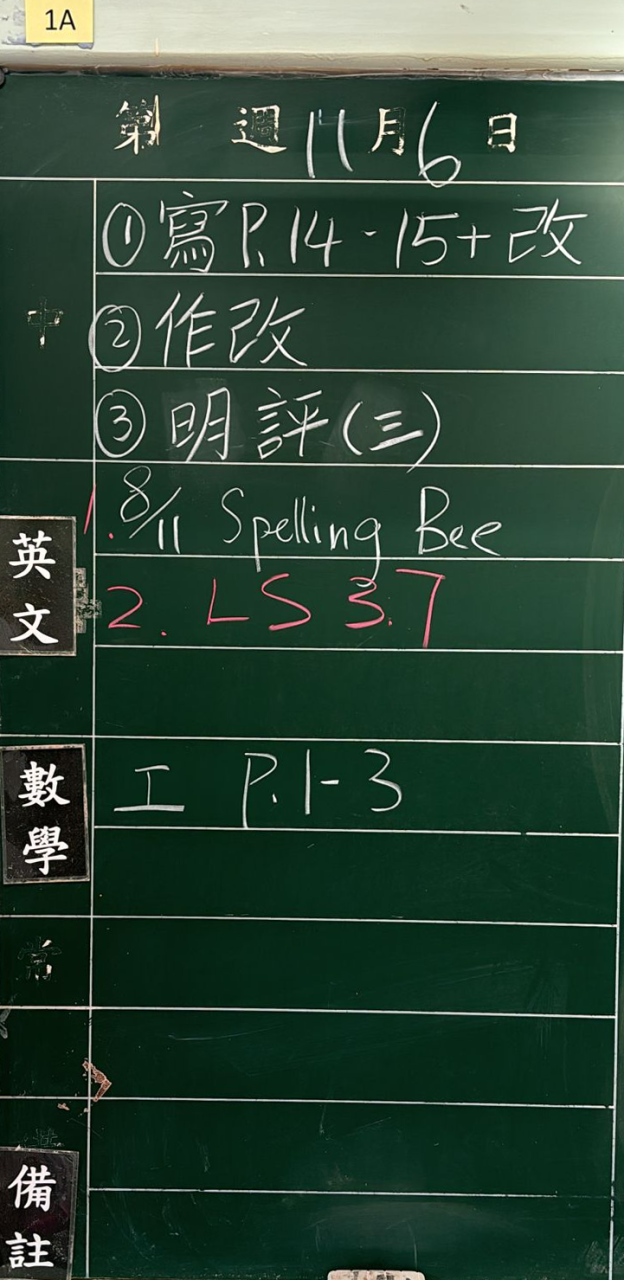 1A
第 週 11月6日
中
①寫P.14-15+改
②作改
③明評(三)
英文
1. 8/11 Spelling Bee
2. LS 3.7
數學
工 P.1-3
常
備註